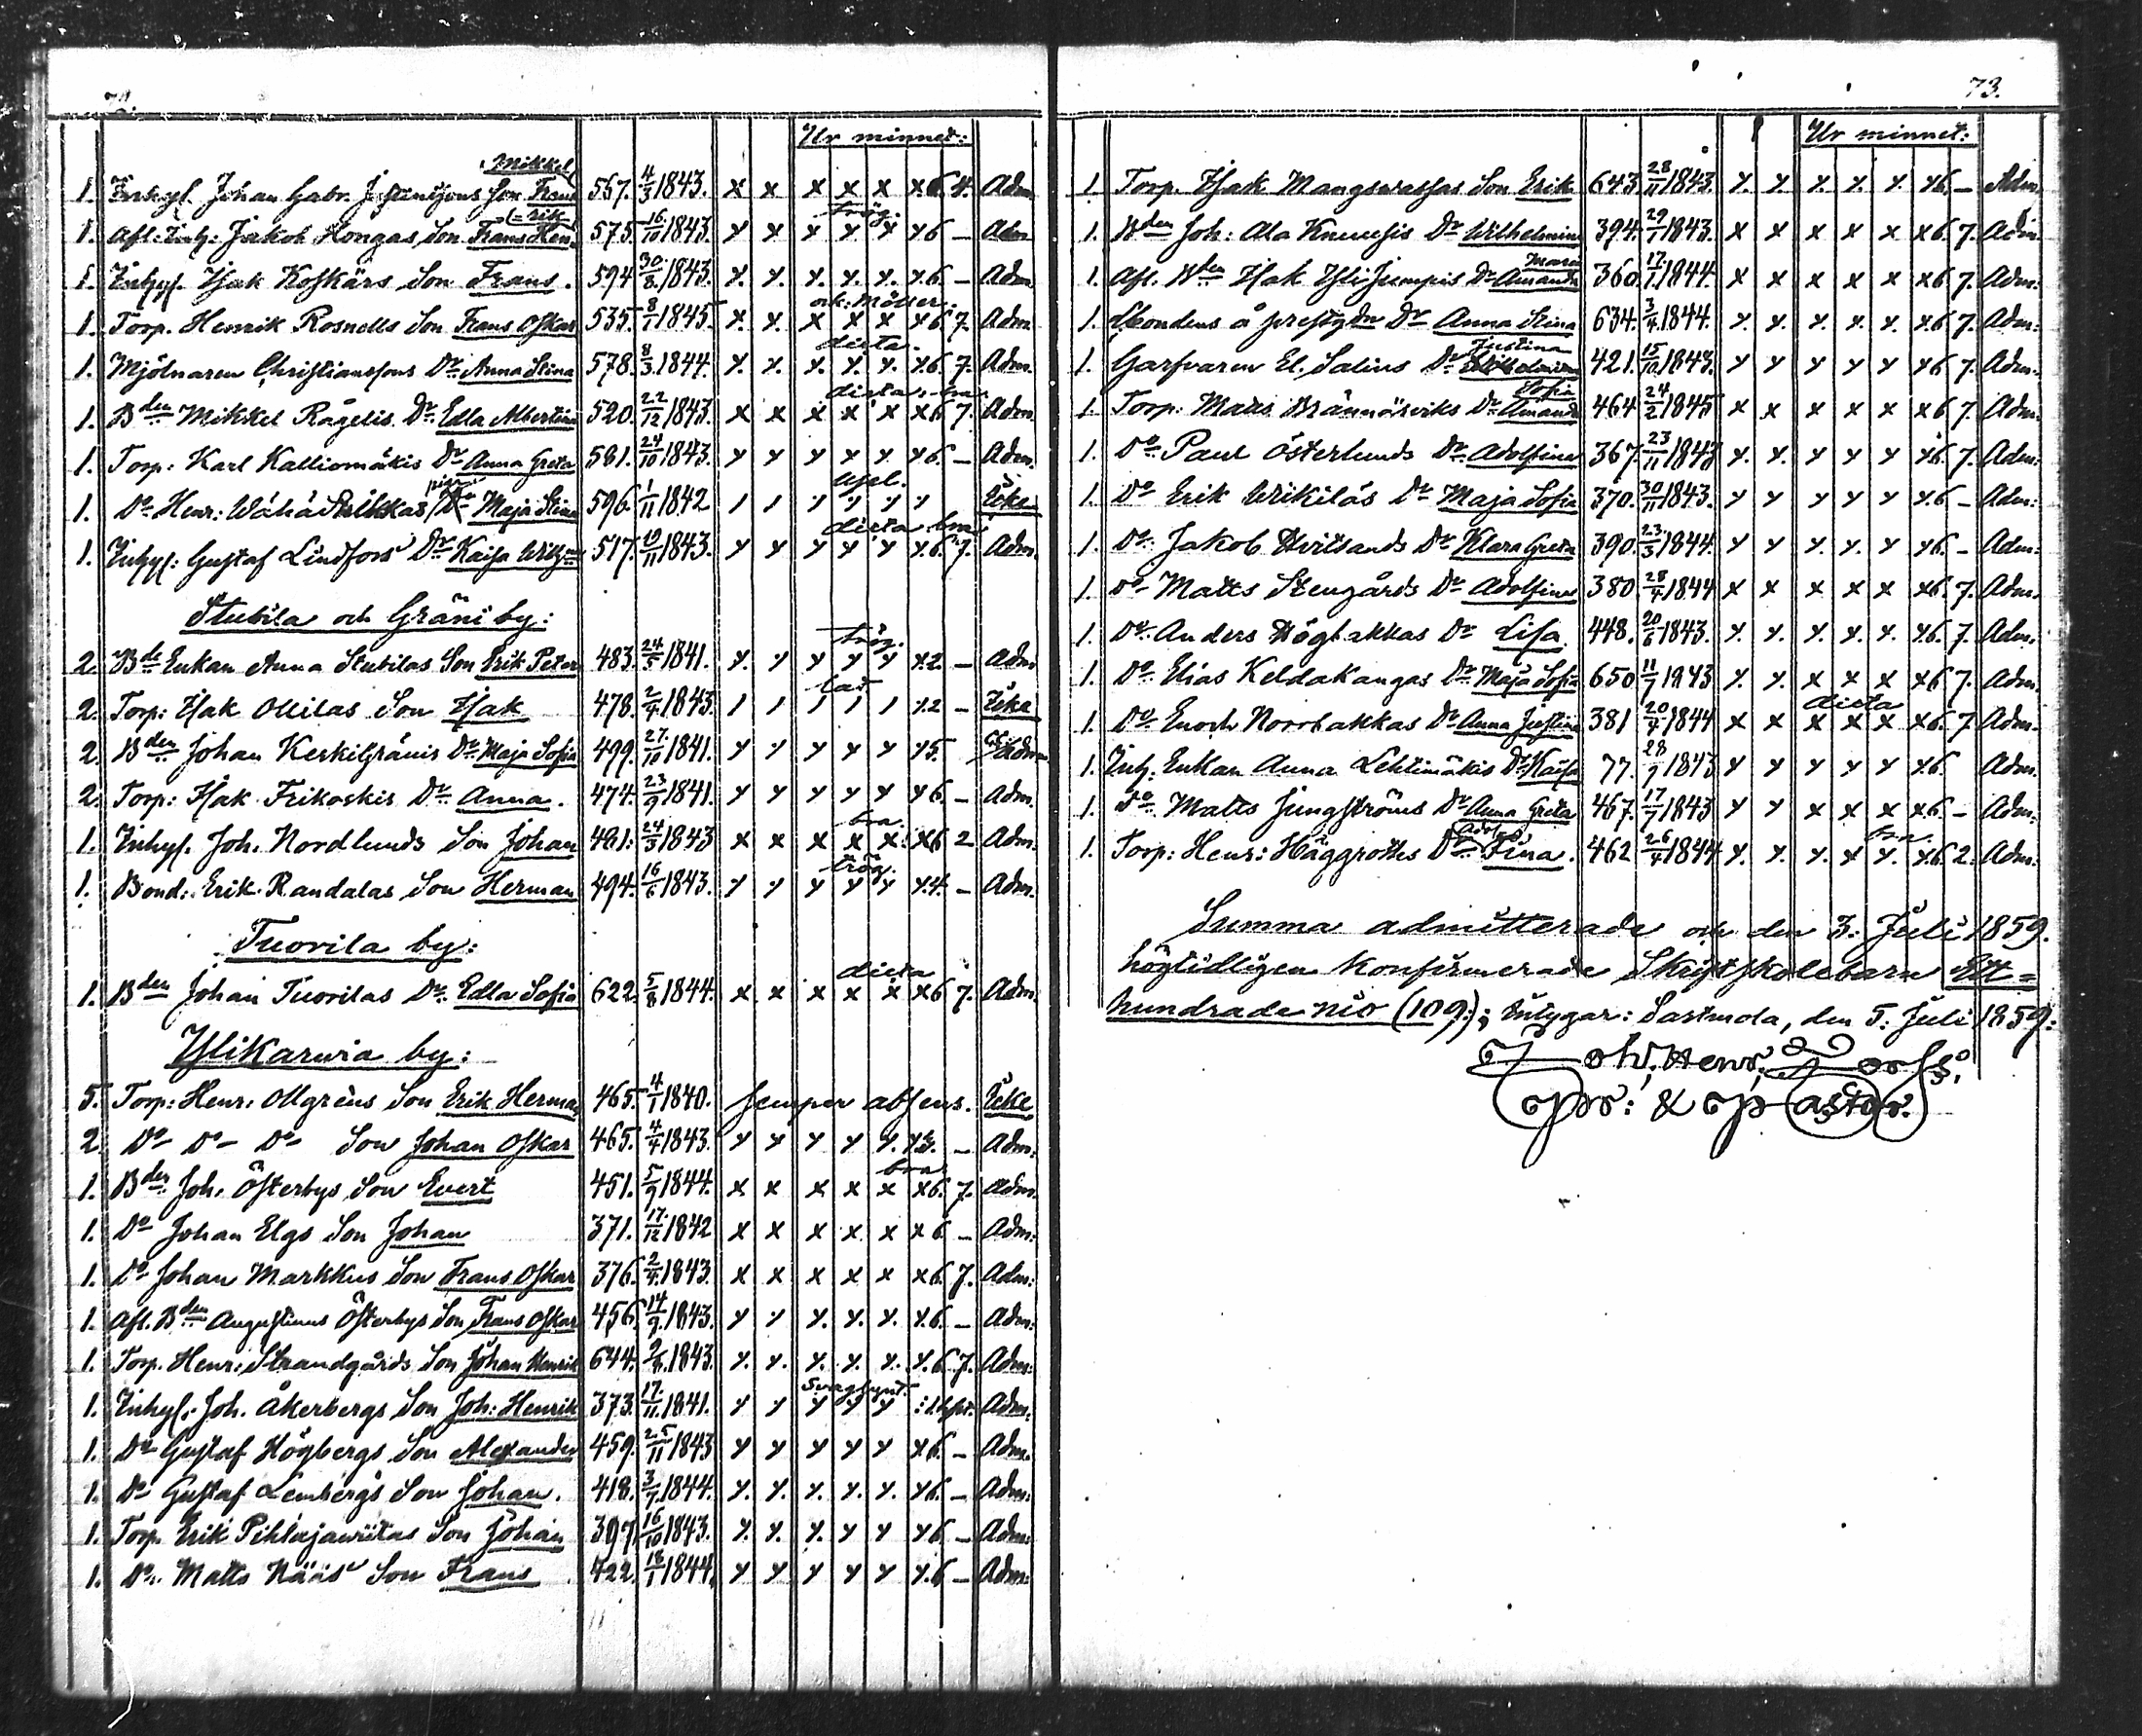 72.
Ur minnet:
Mikkel
1. Inhys. Johan Gabr. Justinssons Son Frans 557. 4/3 1843. x x x x x x 6 4. Adm.
trög. (=rik
1. Afl. Inh: Jakob Hongas Son Frans Hen= 575. 16/10 1843. x x x x x x 6 – Adm
1. Inhys. Isak Koskärs Son Frans. 594 30/8 1843. x. x. x. x. x. x. 6. – Adm
ork. Möller.
1. Torp. Henrik Rosnells Son Frans Oskar 535. 8/1 1845. x. x. x x x x 6 7. Adm.
dicta.
1. Mjölnaren Christianssons Dr. Anna Stina 578. 8/3 1844. x. x. x. x. x. x. 6. 7. Adm.
dicta, bra
1. Bden Mikkel Rågelis Dr. Edla Albertina 520. 22/12 1843. x x x x x x 6. 7. Adm.
1. Torp: Karl Kalliomäkis Dr Anna Greta 581. 24/10 1843. x x x x x. x 6. – Adm.
usel.
1. Do Henr: Wähä Sulkkas Maja Stina 596. 1/11 1842 / / x x x x Icke
dicta bra
1. Inhys: Gustaf Lindfors Dr Kaisa Wilh=na 517. 19/11 1843. x x x x x x. 6. 7. Adm.
Stubila och Gräni by:
trög.
2. Bde Enkan Anna Stubilas Son Erik Peter 483. 24/5 1841. x. x x x x x 2 – Adm
lat
2. Torp: Isak Ollilas Son Isak 478. 2/4 1843. / / / / / x 2 – Icke
2. Bden Johan Kerkilgränis Dr. Maja Sofia 499. 27/10 1841. x x x x x x 5. Adm
2. Torp: Isak Frikoskis Dr. Anna. 474. 23/9 1841. x x x x x x 6. – Adm.
bra
1. Inhys. Joh. Nordlunds Son Johan 481: 24/3 1843 x x x x x: x 6 2 Adm.
trög.
1. Bond: Erik Randalas Son Herman 494. 16/6 1843. x x x x x x. 4. – Adm.
Tuorila by:
dicta
1. Bden Johan Tuorilas Dr. Edla Sofia 622. 5/8 1844. x x x x x x 6 7. Adm.
Ylikarvia by:
5. Torp: Henr: Ollgrèns Son Erik Herman 465. 4/1 1840. semper absens. Icke
2. Do Do Do Son Johan Oskar 465. 4/4 1843. x x x x x. x – Adm:
bra
1. Bden Joh. Österbys Son Evert 451. 5/9 1844. x x x x x x 6. 7. Adm.
1. Do Johan Elgs Son Johan 371. 17/12 1842 x x x x x x 6 – Adm:
1. Do Johan Markkus Son Frans Oskar 376. 2/4 1843. x x x x x x 6. 7. Adm:
1. Afl. Bden Augustinus Österbys Son Frans Oskar 456. 14/9 1843. x x x. x. x. x. 6. – Adm:
1. Torp. Henr: Strandgårds Son Johan Henrik 644. 1843. x. x. x. x. x. x. 6 7. Adm:
Svagsynt
1. Inhys: Joh. Åkerbergs Son Joh: Henrik 373. 17/11 1841. x x x x x Adm:
1. Do Gustaf Högbergs Son Alexander 459. 25/11 1843 x x x x x x 6. – Adm.
1. Do Gustaf Lembergs Son Johan. 418. 3/7 1844. x. x. x. x. x. x 6. – Adm.
1. Torp. Erik Pihlajawiitas Son Johan 397. 16/10 1843. x. x. x. x x x 6 – Adm:
1. Do. Matts Nääs Son Frans 422. 18/1 1844. x x x x x x. 6 – Adm:
73.
Ur minnet:
1. Torp. Isak Mangswassas Son Erik 643 28/11 1843. x. x x. x. x. x 6. – Adm.
1. Bden Joh: Ala Knuusis Dr Wilhelmina 394. 29/1 1843. x x x x x x 6. 7. Adm.
Maria
1. Afl. Bden Isak Yli Jumpis Dr Amanda 360. 17/1 1844. x x x x x x 6 7. Adm.
1. Bondens å prestgdn Dr Anna Stina 634. 3/4 1844. x. x. x. x. x. x. 6 7. Adm:
Justina
1. Garfvaren El. Salins Dr. 421. 15/10 1843. x x x x x x 6 7. Adm:
Sofia
1. Torp: Matts Brännärviks Dr. Amanda 464 24/2 1845 x x x x x x 6 7. Adm.
1. Do Paul Österlunds Dr. Adolfina 367. 23/11 1843 x. x. x x x x. 6. 7. Adm:
1. Do Erik Wrikiläs Dr Maja Sofia 370. 30/11 1843. x x x x x x. 6 – Adm:
1. Do. Jakob Hvitsands Dr Klara Greta 390. 23/3 1844. x x x. x. x x 6. – Adm:
1. Do Matts Stengårds Dr Adolfina 380. 28/4 1844 x x x x x x 6. 7. Adm.
1. Do. Anders Högbakkas Dr Lisa 448. 20/6 1843. x. x. x. x. x. x. 6. 7. Adm.
1. Do. Elias Keldakangas Dr. Maja Sofia 650 11/7 1843 x. x. x x x x 6 7. Adm.
dicta
1. Do Enoch Norrbakkas Dr Anna Justina 381 20/4 1844 x x x x x x 6. 7 Adm.
1. Inh. Enkan Anna Lehtimäkis Dr. Kaisa 77. 28/9 1843 x x x x x x. 6. Adm.
1. Do. Matts Ljungströms Dr Anna Greta 467. 17/7 1843 x x x x x x 6 – Adm:
Adol= bra
1. Torp: Henr: Häggroths Dr. Fina. 462 26/4 1844 x. x. x. x x. x. 6 2. Adm.
Summa admitterade och den 3. Juli 1859.
högtidligen konfirmerade Skriftskolebarn Ett=
hundrade nio (109); intygar: Sastmola, den 5. Juli 1859:
Joh. Henr. Forss.
Pr: & Pastor.